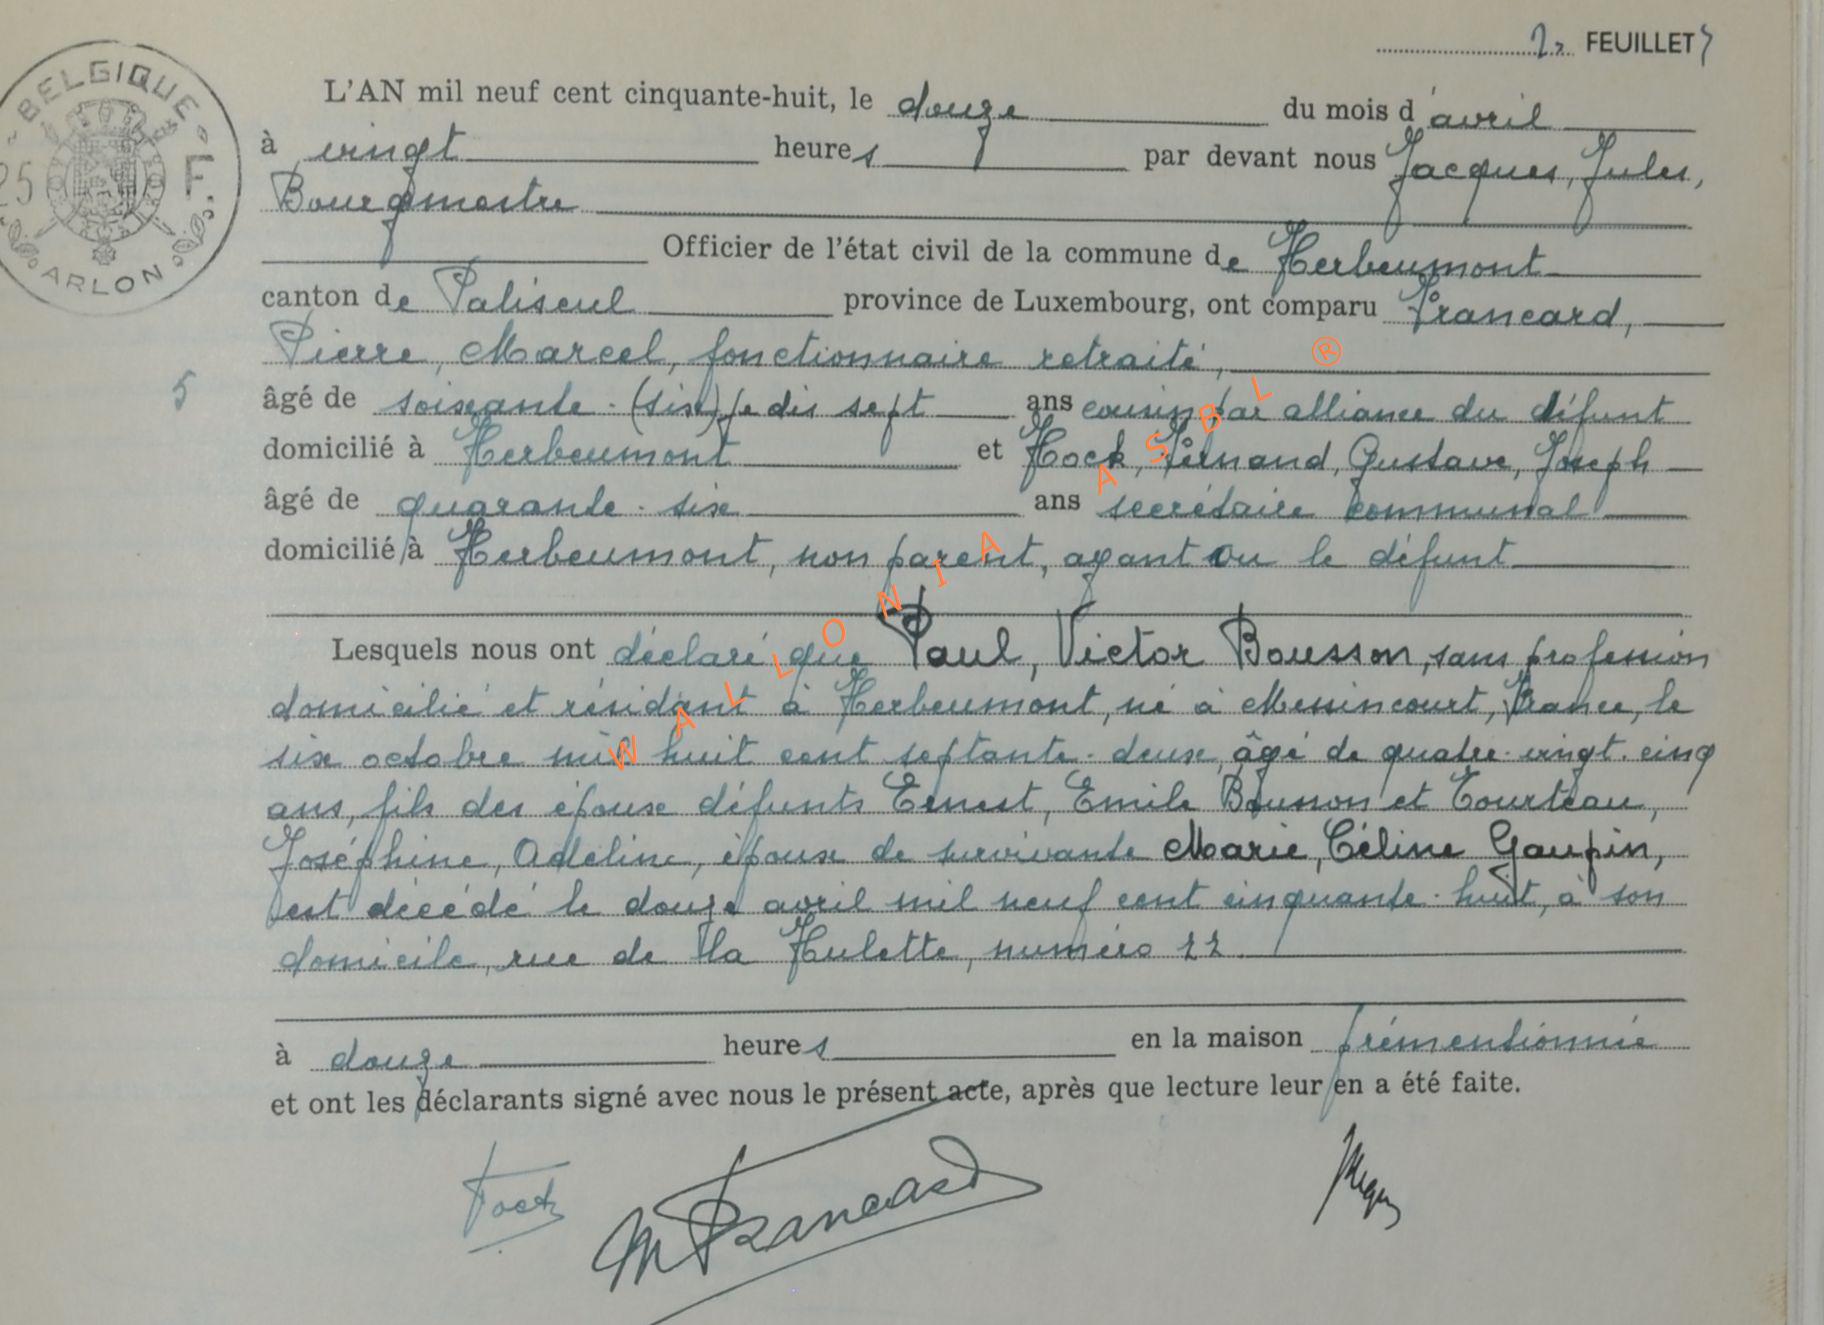 2e FEUILLET
BELGIQUE
25 F.
ARLON
L'AN mil neuf cent cinquante-huit, le douze du mois d'avril
à vingt heures par devant nous Jacques, Jules,
Bourgmestre
Officier de l'état civil de la commune de Herbeumont
canton de Paliseul province de Luxembourg, ont comparu Francard,
Pierre, Marcel, fonctionnaire retraité,
5
âgé de soixante-(six) je dis sept ans cousin par alliance du défunt
domicilié à Herbeumont et Hock, Fernand, Gustave, Joseph
âgé de quarante-six ans secrétaire communal
domicilié à Herbeumont, non parent, ayant vu le défunt
Lesquels nous ont déclaré que Paul, Victor Bousson, sans profession
domicilié et résidant à Herbeumont, né à Messincourt, France, le
six octobre mil huit cent septante-deux, âgé de quatre-vingt-cinq
ans, fils des époux défunts Ernest, Emile Bousson et Tourteau,
Joséphine, Adeline, époux de survivante Marie, Céline Gaupin,
est décédé le douze avril mil neuf cent cinquante-huit, à son
domicile, rue de la Hulette, numéro 22.
à douze heures en la maison prémentionnée
et ont les déclarants signé avec nous le présent acte, après que lecture leur en a été faite.
M Francard
WALLONIA ASBL ®